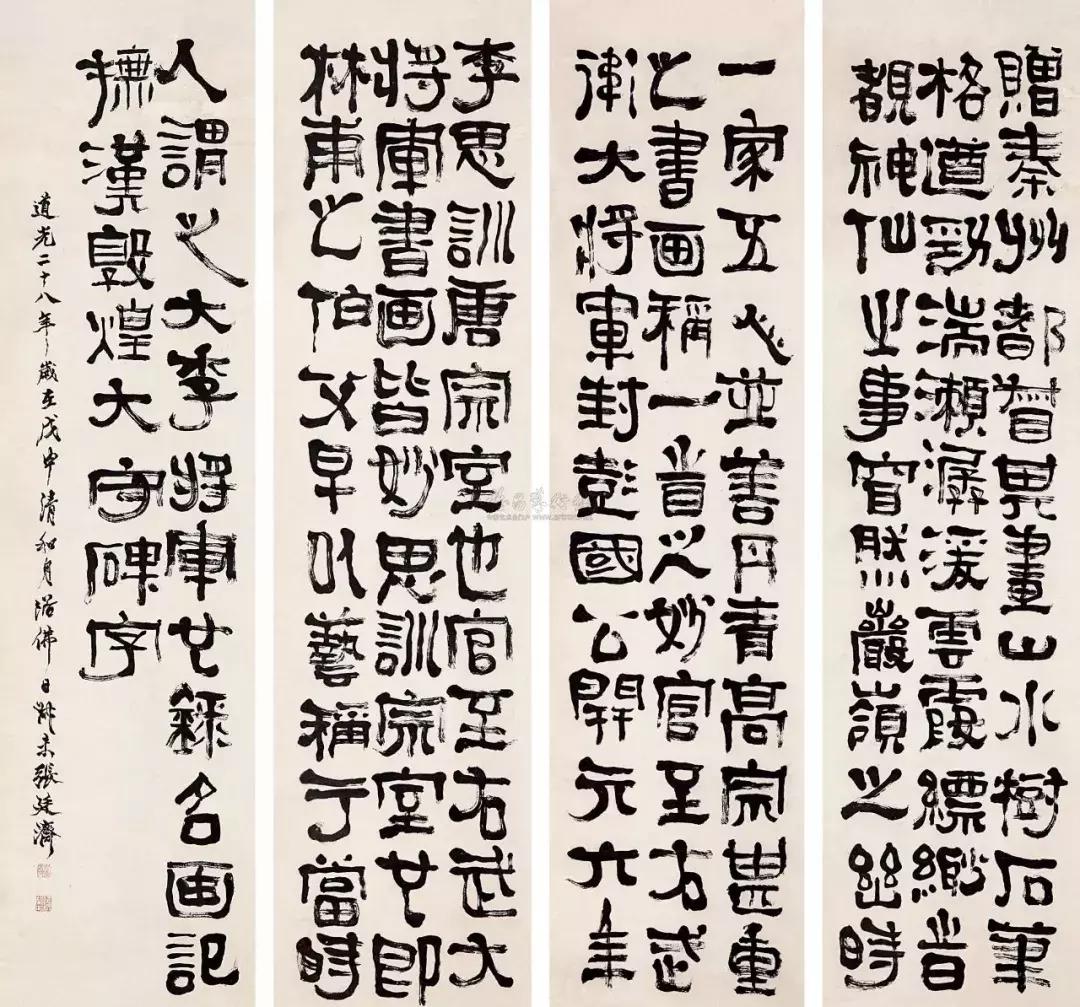 李思訓唐宗室也官至右武大
將軍書画皆妙思訓宗室也即
林甫之伯父早以藝稱于當時
一家五人並善丹青高宗甚重
之書画稱一旹之妙官至右武
衛大將軍封彭國公開元六年
贈秦州都督其畫山水樹石筆
格遒勁湍瀨潺湲雲霞縹緲旹
覩神仙之事窅然巖嶺之幽時
人謂之大李將軍也錄名画記
撫漢敦煌大守碑字
道光二十八年歲在戊申清和月浴佛日叔未張廷濟